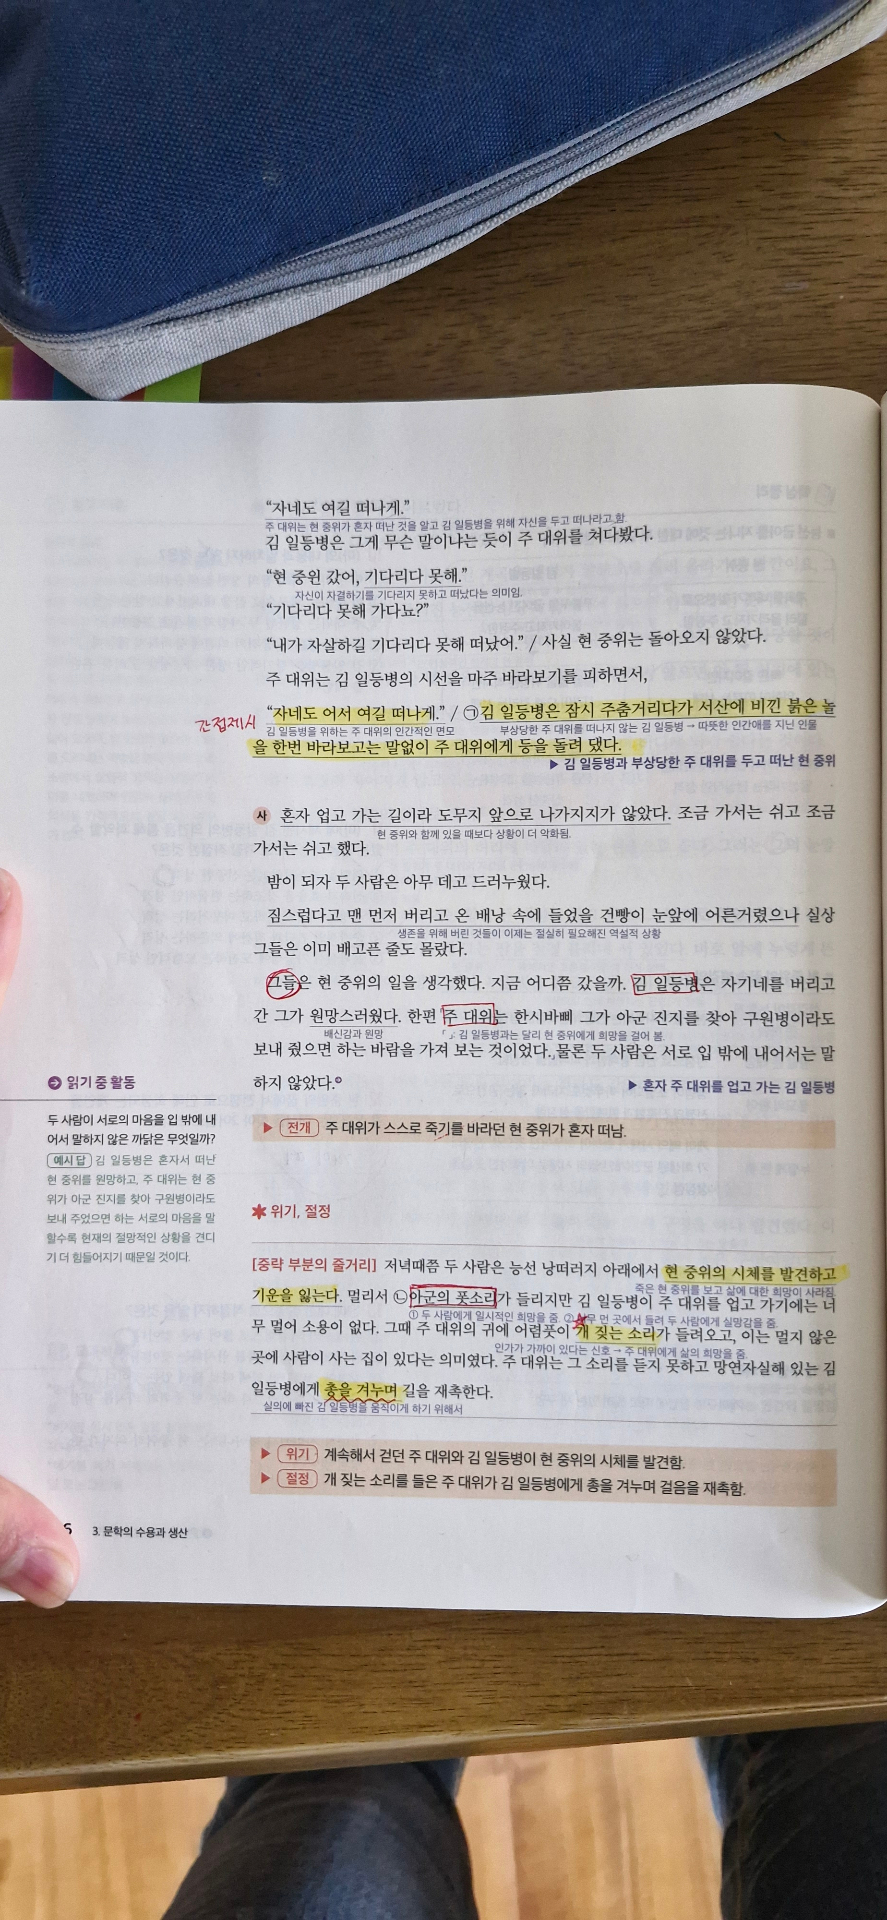 "자네도 여길 떠나게."
주 대위는 현 중위가 혼자 떠난 것을 알고 김 일등병을 위해 자신을 두고 떠나라고 함.
김 일등병은 그게 무슨 말이냐는 듯이 주 대위를 쳐다봤다.
"현 중윈 갔어, 기다리다 못해."
자신이 자결하기를 기다리지 못하고 떠났다는 의미임.
"기다리다 못해 가다뇨?"
"내가 자살하길 기다리다 못해 떠났어." / 사실 현 중위는 돌아오지 않았다.
주 대위는 김 일등병의 시선을 마주 바라보기를 피하면서,
간접제시
"자네도 어서 여길 떠나게." / ㉠김 일등병은 잠시 주춤거리다가 서산에 비낀 붉은 놀
김 일등병을 위하는 주 대위의 인간적인 면모
부상당한 주 대위를 떠나지 않는 김 일등병 → 따뜻한 인간애를 지닌 인물
을 한번 바라보고는 말없이 주 대위에게 등을 돌려 댔다.
▶ 김 일등병과 부상당한 주 대위를 두고 떠난 현 중위
사 혼자 업고 가는 길이라 도무지 앞으로 나가지지가 않았다. 조금 가서는 쉬고 조금
현 중위와 함께 있을 때보다 상황이 더 악화됨.
가서는 쉬고 했다.
밤이 되자 두 사람은 아무 데고 드러누웠다.
짐스럽다고 맨 먼저 버리고 온 배낭 속에 들었을 건빵이 눈앞에 어른거렸으나 실상
생존을 위해 버린 것들이 이제는 절실히 필요해진 역설적 상황
그들은 이미 배고픈 줄도 몰랐다.
그들은 현 중위의 일을 생각했다. 지금 어디쯤 갔을까. 김 일등병은 자기네를 버리고
간 그가 원망스러웠다. 한편 주 대위는 한시바삐 그가 아군 진지를 찾아 구원병이라도
배신감과 원망
「 」: 김 일등병과는 달리 현 중위에게 희망을 걸어 봄.
보내 줬으면 하는 바람을 가져 보는 것이었다.」물론 두 사람은 서로 입 밖에 내어서는 말
하지 않았다.
▶ 혼자 주 대위를 업고 가는 김 일등병
읽기 중 활동
두 사람이 서로의 마음을 입 밖에 내
어서 말하지 않은 까닭은 무엇일까?
예시 답 김 일등병은 혼자서 떠난
현 중위를 원망하고, 주 대위는 현 중
위가 아군 진지를 찾아 구원병이라도
보내 주었으면 하는 서로의 마음을 말
할수록 현재의 절망적인 상황을 견디
기 더 힘들어지기 때문일 것이다.
▶ 전개 주 대위가 스스로 죽기를 바라던 현 중위가 혼자 떠남.
위기, 절정
[중략 부분의 줄거리] 저녁때쯤 두 사람은 능선 낭떠러지 아래에서 현 중위의 시체를 발견하고
죽은 현 중위를 보고 삶에 대한 희망이 사라짐.
기운을 잃는다. 멀리서 ㉡아군의 폿소리가 들리지만 김 일등병이 주 대위를 업고 가기에는 너
① 두 사람에게 일시적인 희망을 줌. ② 너무 먼 곳에서 들려 두 사람에게 실망감을 줌.
무 멀어 소용이 없다. 그때 주 대위의 귀에 어렴풋이 개 짖는 소리가 들려오고, 이는 멀지 않은
인가가 가까이 있다는 신호 → 주 대위에게 삶의 희망을 줌.
곳에 사람이 사는 집이 있다는 의미였다. 주 대위는 그 소리를 듣지 못하고 망연자실해 있는 김
일등병에게 총을 겨누며 길을 재촉한다.
실의에 빠진 김 일등병을 움직이게 하기 위해서
▶ 위기 계속해서 걷던 주 대위와 김 일등병이 현 중위의 시체를 발견함.
▶ 절정 개 짖는 소리를 들은 주 대위가 김 일등병에게 총을 겨누며 걸음을 재촉함.
6 3. 문학의 수용과 생산